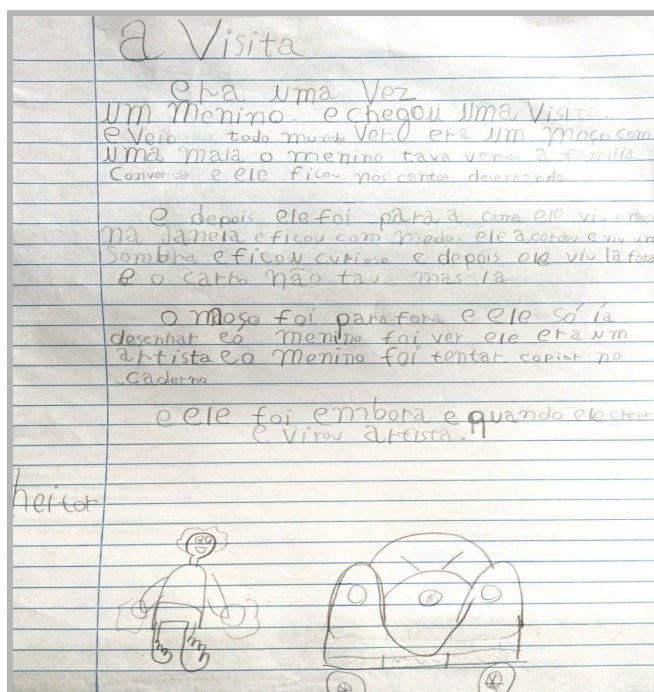 a Visita
era uma Vez
um menino. e chegou uma Visita.
e veio todo mundo Ver. O era um moço com
uma mala o menino tava vendo a família
Conversar e ele ficou nos cantos desenhando
e depois ele foi para a cama ele viu
na Janela e ficou com medo. ele acordou e viu um
Sombra e ficou curioso e depois ele viu lá fora
e o carro não tav mas la
O moço foi para fora e ele só ia
desenhar e o menino foi ver ele era um
artista e o menino foi tentar copiar no
caderno
e ele foi embora e quando ele
e virou artista.
heitor